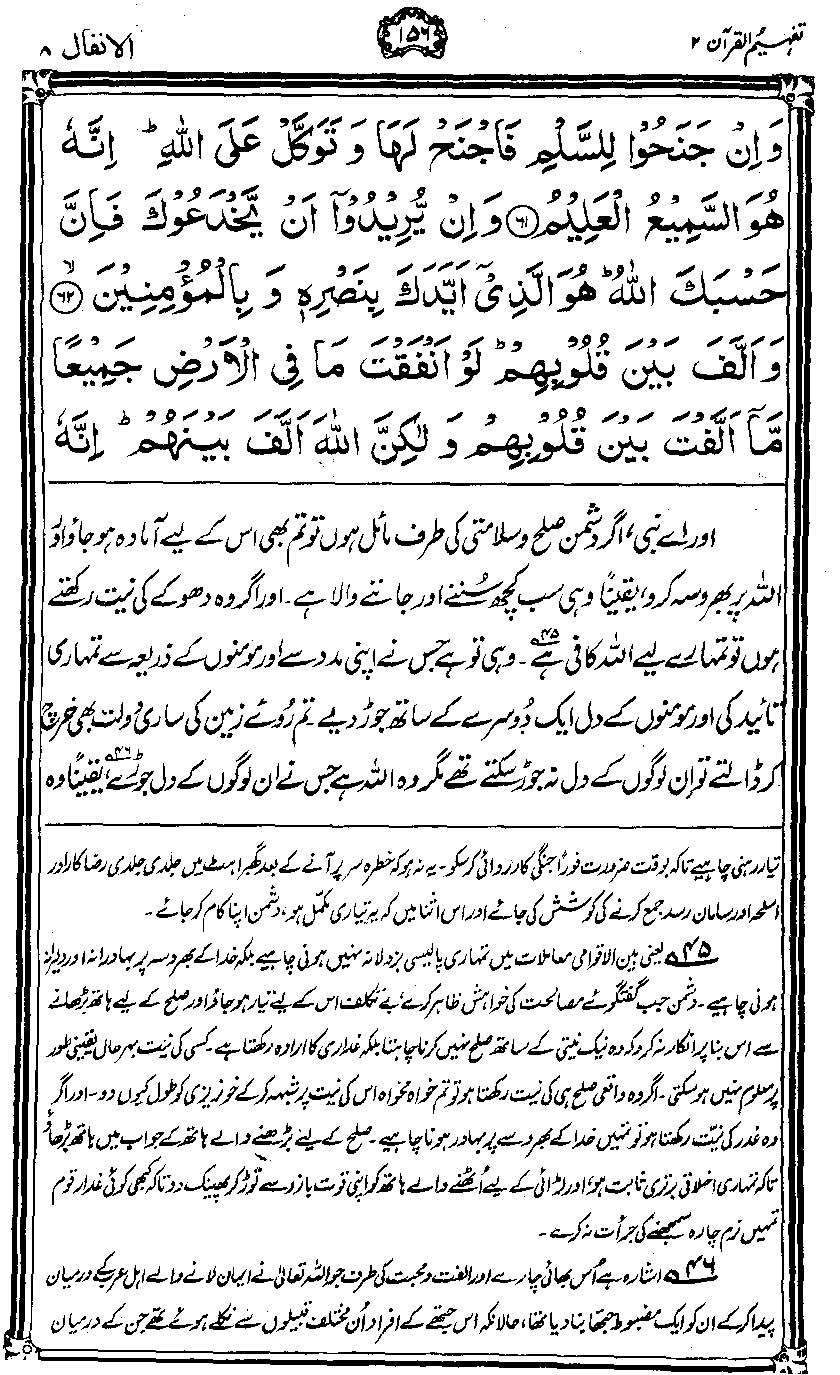 تفہیم القرآن ۲
۱۵۶
الانفال ۸
وَاِنْ جَنَحُوْا لِلسَّلْمِ فَاجْنَحْ لَهَا وَ تَوَكَّلْ عَلَى اللّٰهِ ؕ اِنَّهٗ
هُوَ السَّمِيْعُ الْعَلِيْمُ ﴿۶۱﴾ وَ اِنْ يُّرِيْدُوْۤا اَنْ يَّخْدَعُوْكَ فَاِنَّ
حَسْبَكَ اللّٰهُ ؕ هُوَ الَّذِيْۤ اَيَّدَكَ بِنَصْرِهٖ وَ بِالْمُؤْمِنِيْنَ ﴿۶۲﴾ۙ
وَ اَلَّفَ بَيْنَ قُلُوْبِهِمْ ؕ لَوْ اَنْفَقْتَ مَا فِي الْاَرْضِ جَمِيْعًا
مَّاۤ اَلَّفْتَ بَيْنَ قُلُوْبِهِمْ وَ لٰكِنَّ اللّٰهَ اَلَّفَ بَيْنَهُمْ ؕ اِنَّهٗ
اور اے نبی، اگر دشمن صلح و سلامتی کی طرف مائل ہوں تو تم بھی اس کے لیے آمادہ ہو جاؤ اور
اللہ پر بھروسہ کرو، یقیناً وہی سب کچھ سُننے اور جاننے والا ہے۔ اور اگر وہ دھوکے کی نیت رکھتے
ہوں تو تمہارے لیے اللہ کافی ہے۴۵۔ وہی تو ہے جس نے اپنی مدد سے اور مومنوں کے ذریعہ سے تمہاری
تائید کی اور مومنوں کے دل ایک دُوسرے کے ساتھ جوڑ دیے۔ تم رُوئے زمین کی ساری دولت بھی خرچ
کر ڈالتے تو اِن لوگوں کے دل نہ جوڑ سکتے تھے مگر وہ اللہ ہے جس نے ان لوگوں کے دل جوڑے۴۶، یقیناً وہ
تیار رہنی چاہیے تاکہ بوقت ضرورت فوراً جنگی کارروائی کر سکو۔ یہ نہ ہو کہ خطرہ سر پر آنے کے بعد گھبراہٹ میں جلدی جلدی رضا کار اور
اسلحہ اور سامان رسد جمع کرنے کی کوشش کی جائے اور اس اثنا میں کہ یہ تیاری مکمل ہو، دشمن اپنا کام کر جائے۔
۴۵ یعنی بین الاقوامی معاملات میں تمہاری پالیسی بزدلانہ نہیں ہونی چاہیے بلکہ خدا کے بھروسہ پر بہادرانہ اور دلیرانہ
ہونی چاہیے۔ دشمن جب گفتگوئے مصالحت کی خواہش ظاہر کرے، بے تکلف اس کے لیے تیار ہو جاؤ اور صلح کے لیے ہاتھ بڑھانے
سے اس بنا پر انکار نہ کرو کہ وہ نیک نیتی کے ساتھ صلح نہیں کرنا چاہتا بلکہ غداری کا ارادہ رکھتا ہے۔ کسی کی نیت بہرحال یقینی طور
پر معلوم نہیں ہو سکتی۔ اگر وہ واقعی صلح ہی کی نیت رکھتا ہو تو تم خواہ مخواہ اس کی نیت پر شبہ کر کے خونریزی کو طول کیوں دو۔ اور اگر
وہ غدر کی نیت رکھتا ہو تو تمہیں خدا کے بھروسے پر بہادر ہونا چاہیے۔ صلح کے لیے بڑھنے والے ہاتھ کے جواب میں ہاتھ بڑھاؤ
تاکہ تمہاری اخلاقی برتری ثابت ہو، اور لڑائی کے لیے اُٹھنے والے ہاتھ کو اپنی قوت بازو سے توڑ کر پھینک دو تاکہ کبھی کوئی غدار قوم
تمہیں نرم چارہ سمجھنے کی جرأت نہ کرے۔
۴۶ اشارہ ہے اُس بھائی چارے اور الفت و محبت کی طرف جو اللہ تعالیٰ نے ایمان لانے والے اہل عرب کے درمیان
پیدا کر کے ان کو ایک مضبوط جتھا بنا دیا تھا، حالانکہ اس جتھے کے افراد اُن مختلف قبیلوں سے نکلے ہوئے تھے جن کے درمیان